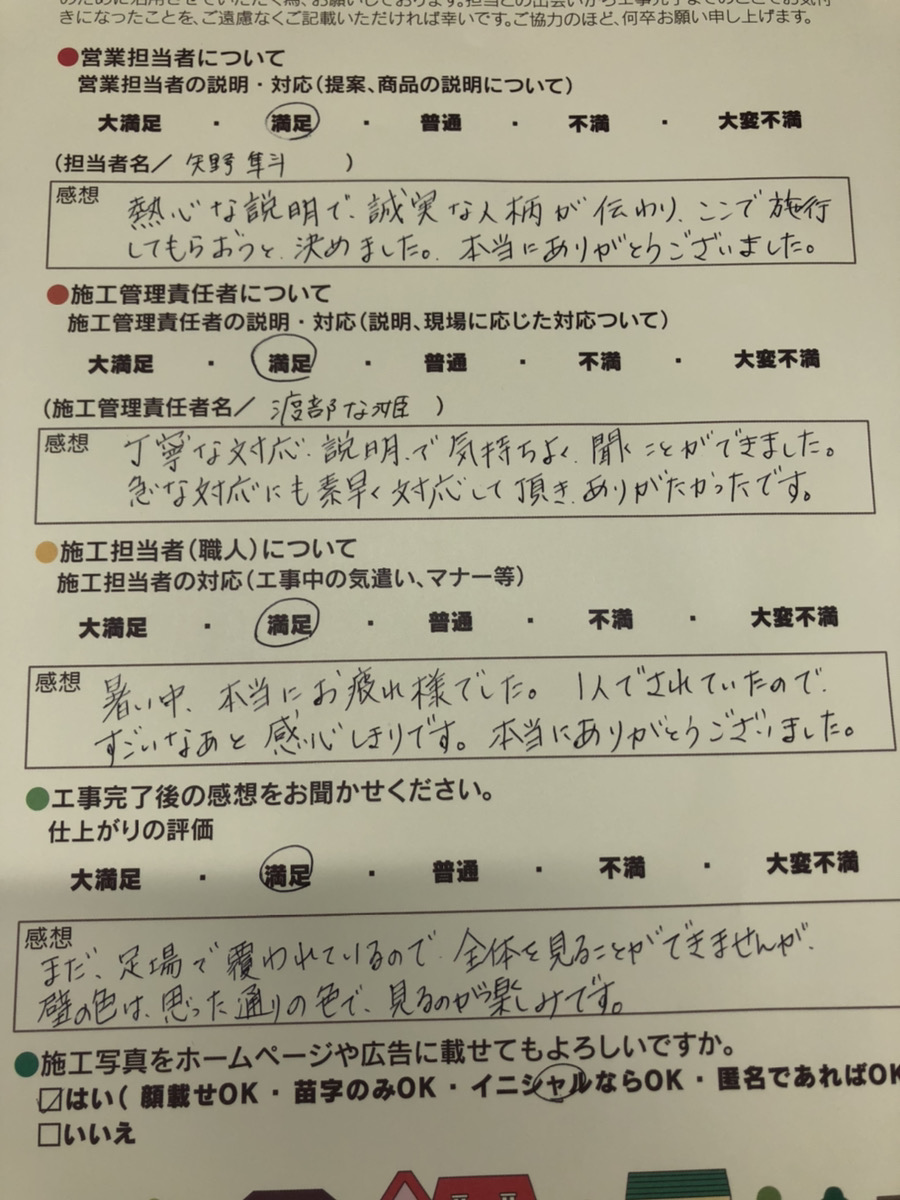 のために活用させていただく為、お願いしております。担当との出会いから工事完了までのことでお気付
きになったことを、ご遠慮なくご記載いただければ幸いです。ご協力のほど、何卒お願い申し上げます。
●営業担当者について
営業担当者の説明・対応(提案、商品の説明について)
大満足 ・ 満足 ・ 普通 ・ 不満 ・ 大変不満
(担当者名/ 矢野 隼斗 )
感想
熱心な説明で、誠実な人柄が伝わり、ここで施行
してもらおうと、決めました。本当にありがとうございました。
●施工管理責任者について
施工管理責任者の説明・対応(説明、現場に応じた対応ついて)
大満足 ・ 満足 ・ 普通 ・ 不満 ・ 大変不満
(施工管理責任者名/ 渡部 な姫 )
感想
丁寧な対応、説明、で気持ちよく、聞くことができました。
急な対応にも素早く対応して頂き、ありがたかったです。
●施工担当者(職人)について
施工担当者の対応(工事中の気遣い、マナー等)
大満足 ・ 満足 ・ 普通 ・ 不満 ・ 大変不満
感想
暑い中、本当にお疲れ様でした。1人でされていたので、
すごいなあと感心しきりです。本当にありがとうございました。
●工事完了後の感想をお聞かせください。
仕上がりの評価
大満足 ・ 満足 ・ 普通 ・ 不満 ・ 大変不満
感想
まだ、足場で覆われているので、全体を見ることができませんが、
壁の色は、思った通りの色で、見るのが楽しみです。
●施工写真をホームページや広告に載せてもよろしいですか。
☑はい( 顔載せOK ・ 苗字のみOK ・ イニシャルならOK ・ 匿名であればOK
□いいえ